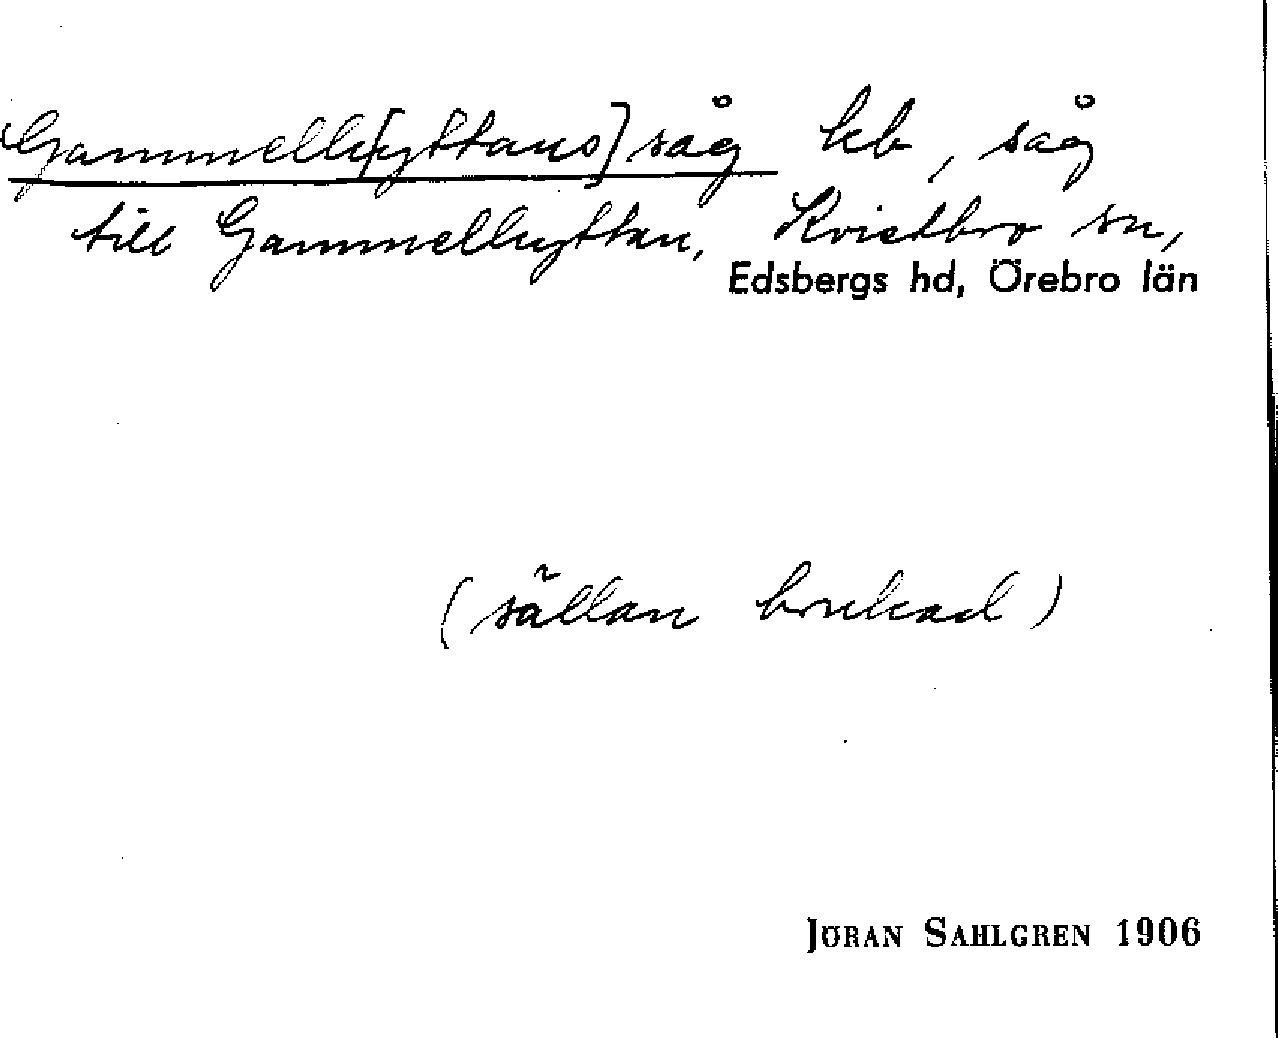 Gammelh[yttans] såg kb, såg
till Gammelhyttan, Kvistbro sn,
Edsbergs hd, Örebro län
(sällan brukad)
JÖRAN SAHLGREN 1906